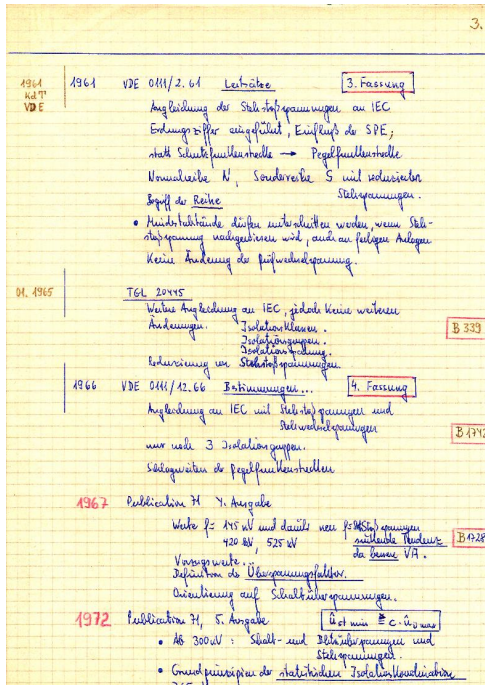 3.
1961 KdT VDE
1961 VDE 0111/2.61 Leitsätze 3. Fassung
Angleichung der Stehstoßspannungen an IEC
Erdungsziffer eingeführt, Einfluß der SPE,
statt Schutzfunkenstrecke → Pegelfunkenstrecke
Normalreihe N, Sonderreihe S mit reduzierten
Stehspannungen.
Begriff der Reihe
• Mindestabstände dürfen unterschritten werden, wenn Steh-
stoßspannung nachgewiesen wird, auch an fertigen Anlagen
Keine Änderung der Prüfwechselspannung.
01. 1965 TGL 20445
Weitere Angleichung an IEC, jedoch keine weiteren
Änderungen. Isolationsklassen.
B 339
Isolationsgruppen.
Isolationsspannung.
Reduzierung von Stehstoßspannungen
1966 VDE 0111/12.66 Bestimmungen... 4. Fassung
Angleichung an IEC mit Stehstoßspannungen und
Stehwechselspannungen
B 1742
nur noch 3 Isolationsgruppen.
Schlagweiten der Pegelfunkenstrecken
1967 Publication 71 4. Ausgabe
Werte f= 145 kV und darüber neu Stoßspannungen
420 kV, 525 kV sinkende Tendenz
B 1728
da bessere VA.
Vorzugswerte.
Definition des Überspannungsfaktor.
Orientierung auf Schaltüberspannungen.
1972 Publication 71, 5. Ausgabe û st min ≧ c · û ü max
• Ab 300 kV : Schalt- und Blitzüberspannungen und
Stehspannungen.
• Grundprinzipien der statistischen Isolationskoordination